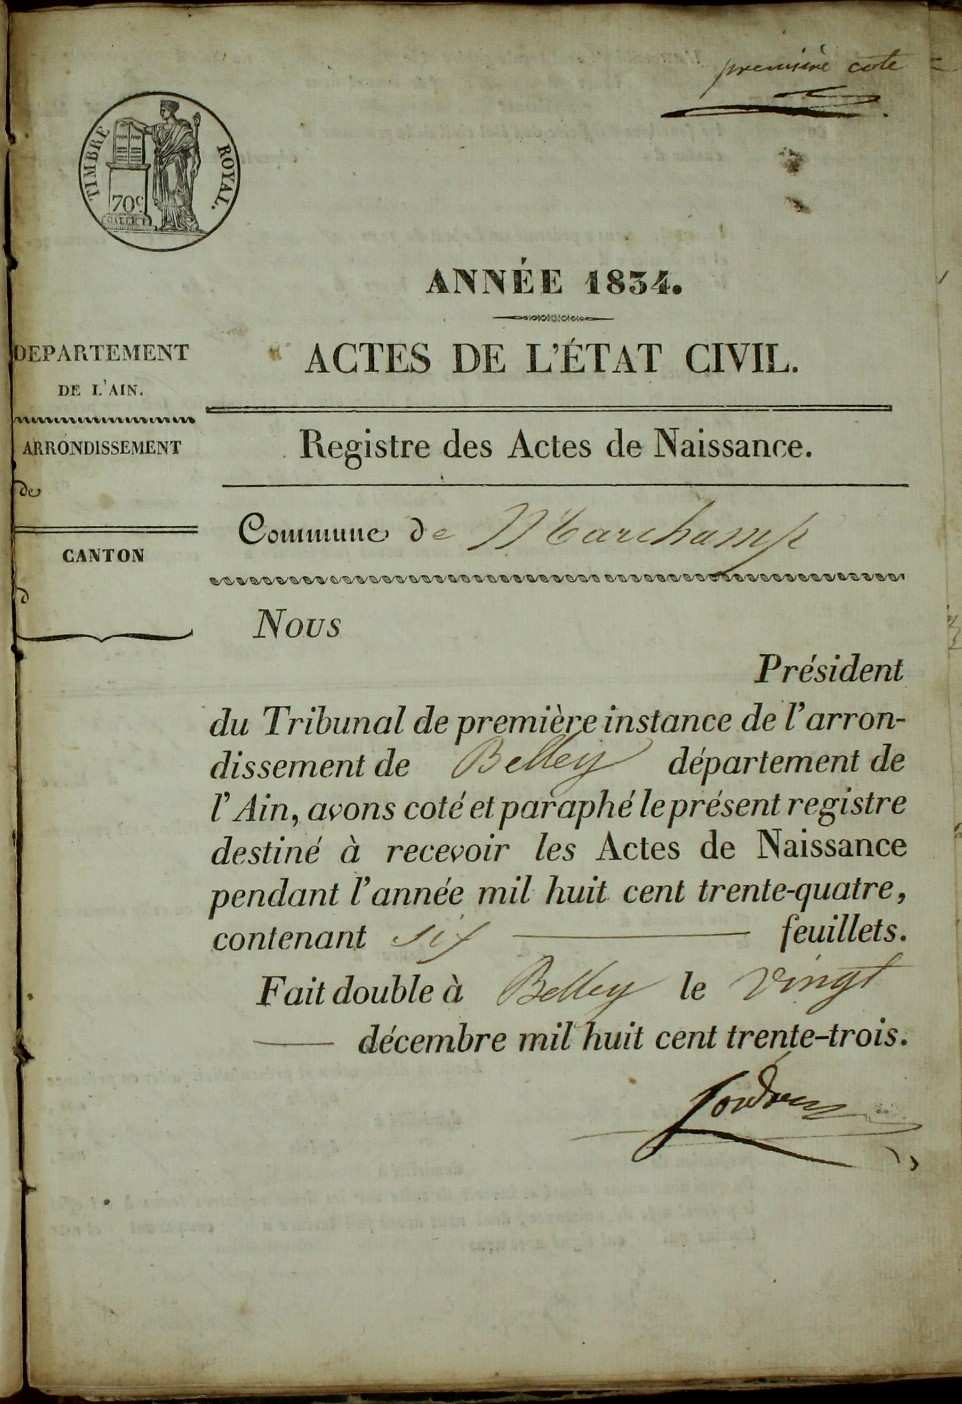 première cote
TIMBRE ROYAL.
70c
ANNÉE 1834.
DEPARTEMENT
DE L'AIN.
ACTES DE L'ÉTAT CIVIL.
ARRONDISSEMENT
de
Registre des Actes de Naissance.
CANTON
d
Commune de Marchamp
Nous
Président
du Tribunal de première instance de l'arron-
dissement de Belley département de
l'Ain, avons coté et paraphé le présent registre
destiné à recevoir les Actes de Naissance
pendant l'année mil huit cent trente-quatre,
contenant six feuillets.
Fait double à Belley le vingt
décembre mil huit cent trente-trois.